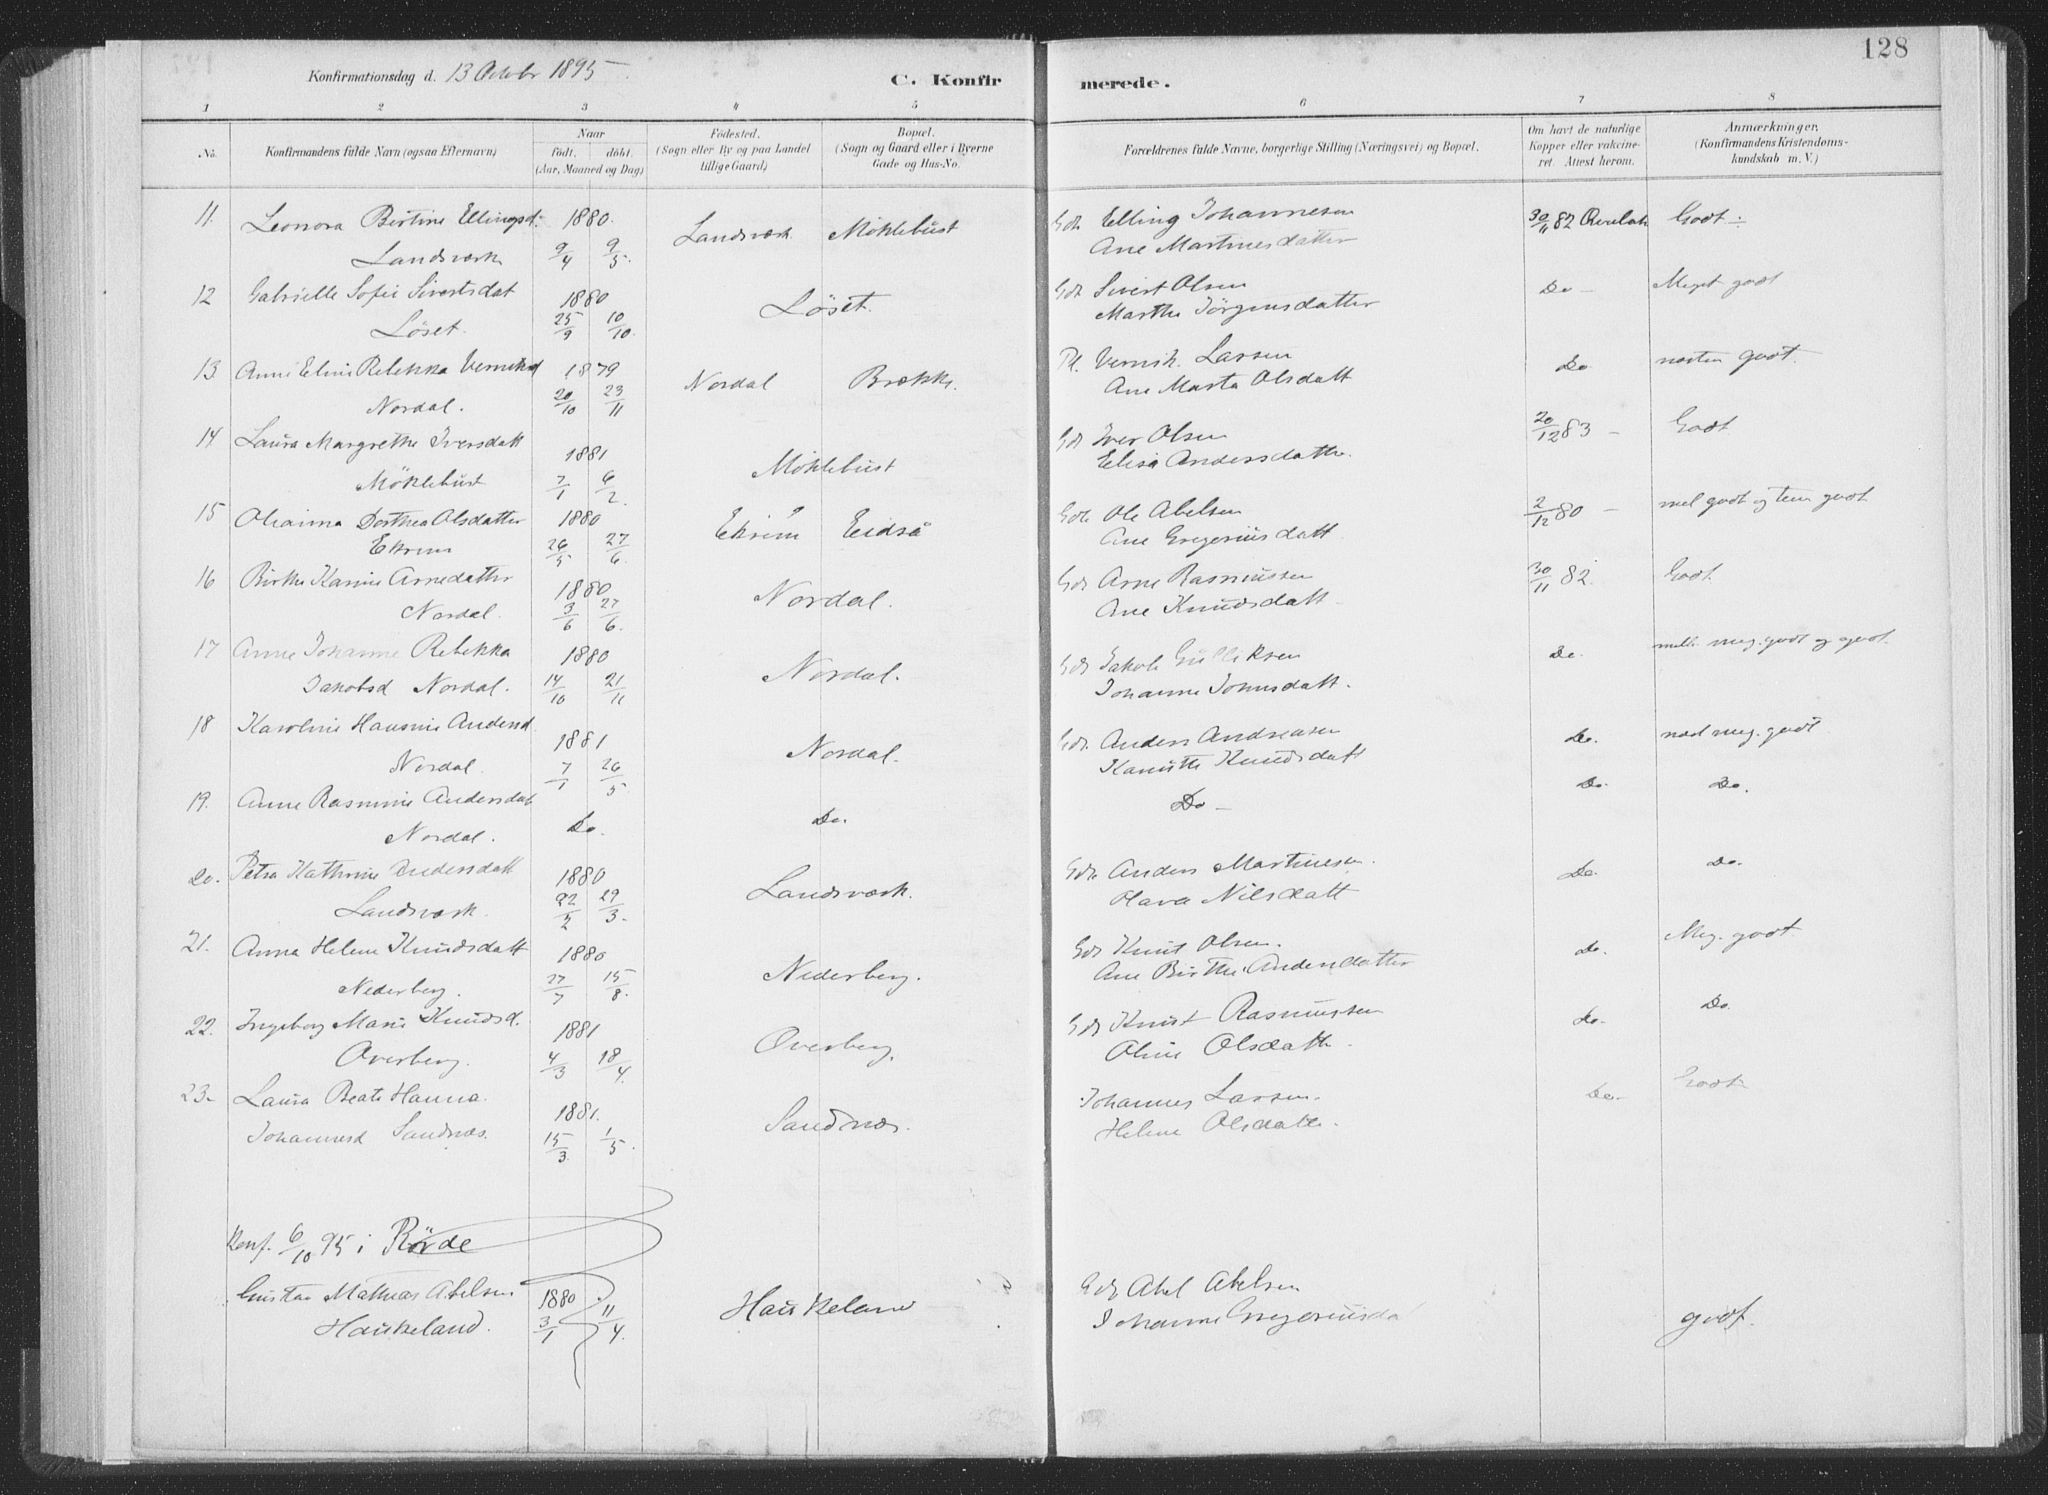 128
Konfirmationsdag d. 13 Octobr 1895.
C. Konfirmerede.
1 2 3 4 5 6 7 8
No. Konfirmandens fulde Navn (ogsaa Efternavn) Naar födt. döbt. (Aar, Maaned og Dag) Födested. (Sogn eller By og paa Landet tillige Gaard) Bopæl. (Sogn og Gaard eller i Byerne Gade og Hus-No. Forældrenes fulde Navne, borgerlige Stilling (Næringsvei) og Bopæl. Om havt de naturlige Kopper eller vakcineret. Attest herom. Anmærkninger. (Konfirmandens Kristendomskundskab m. V.)
11. Leonora Bertine Ellingsd. 1880. Landsværk Möklebust Gdr. Elling Johannesen 30/11 82 Godt
Landsværk 9/4 9/5. Ane Martinesdatter
12 Gabrielle Sofie Sivertsdat 1880 Löset. Gdr. Sivert Olsen Do Meget godt
Löset. 25/9 10/10. Marthe Jörgensdatter
13 Anne Eline Rebekka 1879 Nordal Brekke. Pl. Larsen Do næsten godt.
Nordal. 20/10 23/11 Ane Marta Olsdatt
14 Laura Margrethe Iversdatt 1881 Möklebust Gdr Iver Olsen 20/12 83 Godt
Möklebust 7/1 6/2. Elisa Andersdatter.
15 Dorthea Olsdatter 1880 Ekrem Eidså Gdr. Ole Abelsen 2/12 80 mel godt og tem godt
Ekrem 26/5 27/6. Ane Gregoriusdatt
16 Birthe Karine Arnedatter 1880 Nordal. Gdr Arne Rasmussen 30/11 82. Godt
Nordal. 3/6 27/6. Ane Knudsdatt
17 Anne Johanne Rebekka 1880 Nordal. Gdr Jakob Gulliksen Do. mell. meg. godt og godt.
Jakobsd Nordal. 14/10 21/11 Johanne Jonnsdatt.
18 Karoline Hansine Andersd 1881 Nordal. Gdr. Anders Andreasen Do. næst meg. godt
Nordal. 7/1 26/5. Kanutte Knudsdatt
19. Anne Rasmine Andersdat Do. Do. Do Do. Do.
Nordal.
20. Petra Kathrine Andersdatt 1880 Landsværk. Gdr. Anders Martinesen. Do. Do.
Landsværk. 22/2 29/3. Olava Nilsdatt
21. Anna Helene Knudsdatt 1880 Nederberg. Gdr Knut Olsen. Do. Meg. godt
Nederberg. 27/7 15/8. Ane Birthe Andersdatter
22. Ingeborg Marie Knudsd. 1881 Overberg. Gdr Knut Rasmussen Do. Do.
Overberg. 4/3 18/4. Oline Olsdatt.
23. Laura Beate Hanna 1881. Sandnæs. Johannes Larsen. Do. Godt
Johannesd Sandnæs. 15/3 1/5. Helene Olsdatt.
Konf. 6/10 95 i Rövde
Gustav Mathias Abelsen 1880 Haukeland Gdr Abel Abelsen
Haukeland. 3/1 11/4. Johanne Gregoriusda godt.